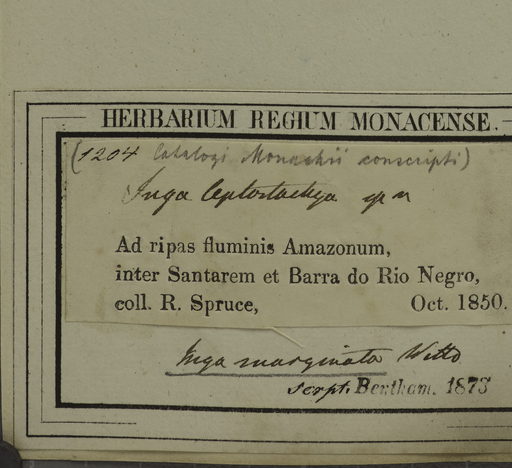 HERBARIUM REGIUM MONACENSE.
(1204 Catalogi Monachii conscripti)
Inga leptostachya sp n
Ad ripas fluminis Amazonum,
inter Santarem et Barra do Rio Negro,
coll. R. Spruce, Oct. 1850.
Inga marginata Willd
script. Bentham. 1873